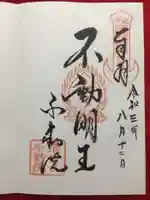 奉拝
令和三年
八月十二日
不動明王